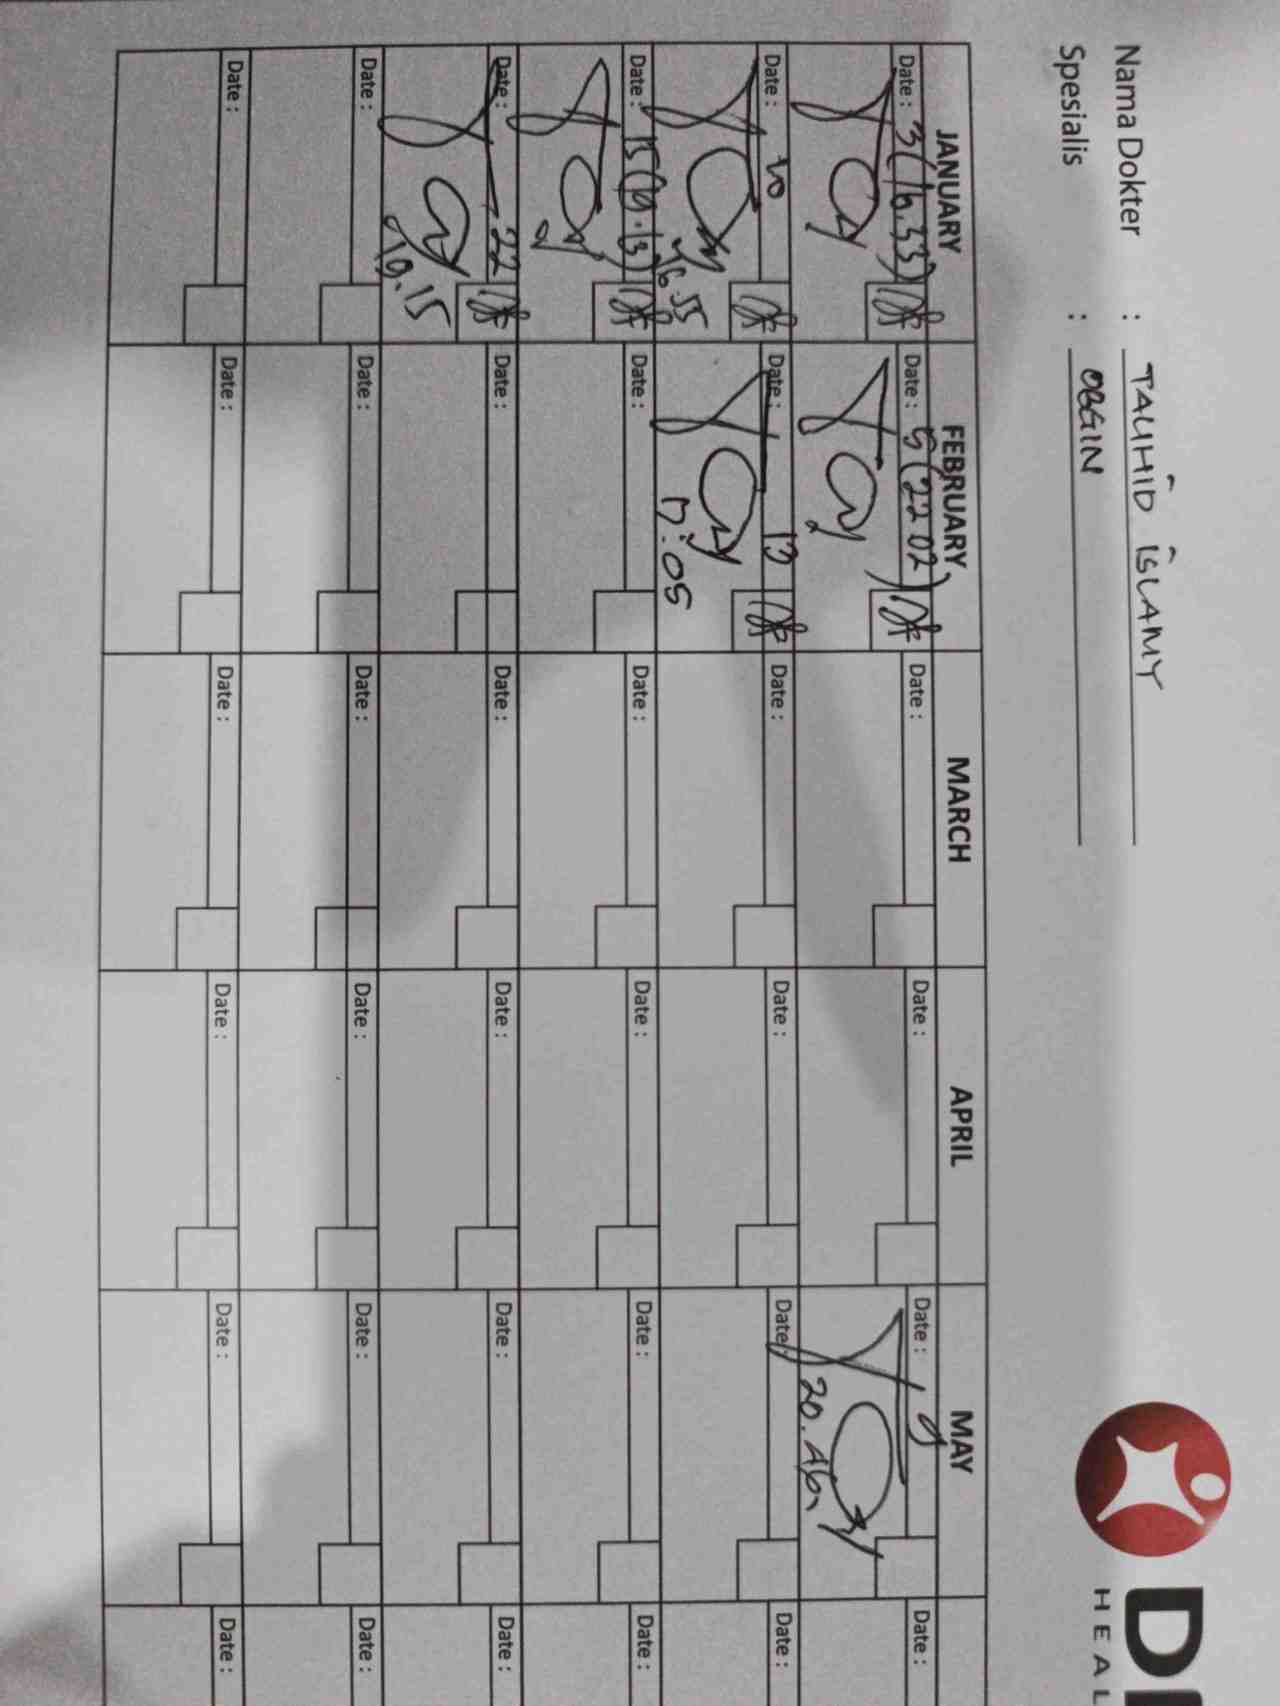 DI
HEAL
Nama Dokter : TAUHID ISLAMY
Spesialis : OBGIN
JANUARY FEBRUARY MARCH APRIL MAY
Date : 3 (16.33) Date : 5 (22 02) Date : Date : Date : Date :
20.46
Date : Date : 13 Date : Date : Date : Date :
16.55 17:05
Date : 15 (19.13) Date : Date : Date : Date : Date :
Date : 22 Date : Date : Date : Date : Date :
19.15
Date : Date : Date : Date : Date : Date :
Date : Date : Date : Date : Date : Date :